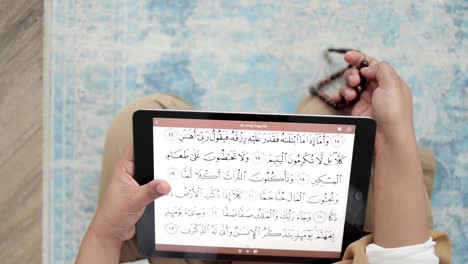 ١٥ وَأَمَّآ إِذَا مَا ٱبْتَلَىٰهُ فَقَدَرَ عَلَيْهِ رِزْقَهُۥ فَيَقُولُ رَبِّىٓ أَهَٰنَنِ ١٦
كَلَّا بَل لَّا تُكْرِمُونَ ٱلْيَتِيمَ ١٧ وَلَا تَحَٰٓضُّونَ عَلَىٰ طَعَامِ
ٱلْمِسْكِينِ ١٨ وَتَأْكُلُونَ ٱلتُّرَاثَ أَكْلًا لَّمًّا ١٩
وَتُحِبُّونَ ٱلْمَالَ حُبًّا جَمًّا ٢٠ كَلَّآ إِذَا دُكَّتِ ٱلْأَرْضُ دَكًّا
دَكًّا ٢١ وَجَآءَ رَبُّكَ وَٱلْمَلَكُ صَفًّا صَفًّا ٢٢ وَجِا۟ىٓءَ يَوْمَئِذٍۭ
بِجَهَنَّمَ يَوْمَئِذٍ يَتَذَكَّرُ ٱلْإِنسَٰنُ وَأَنَّىٰ لَهُ ٱلذِّكْرَىٰ ٢٣